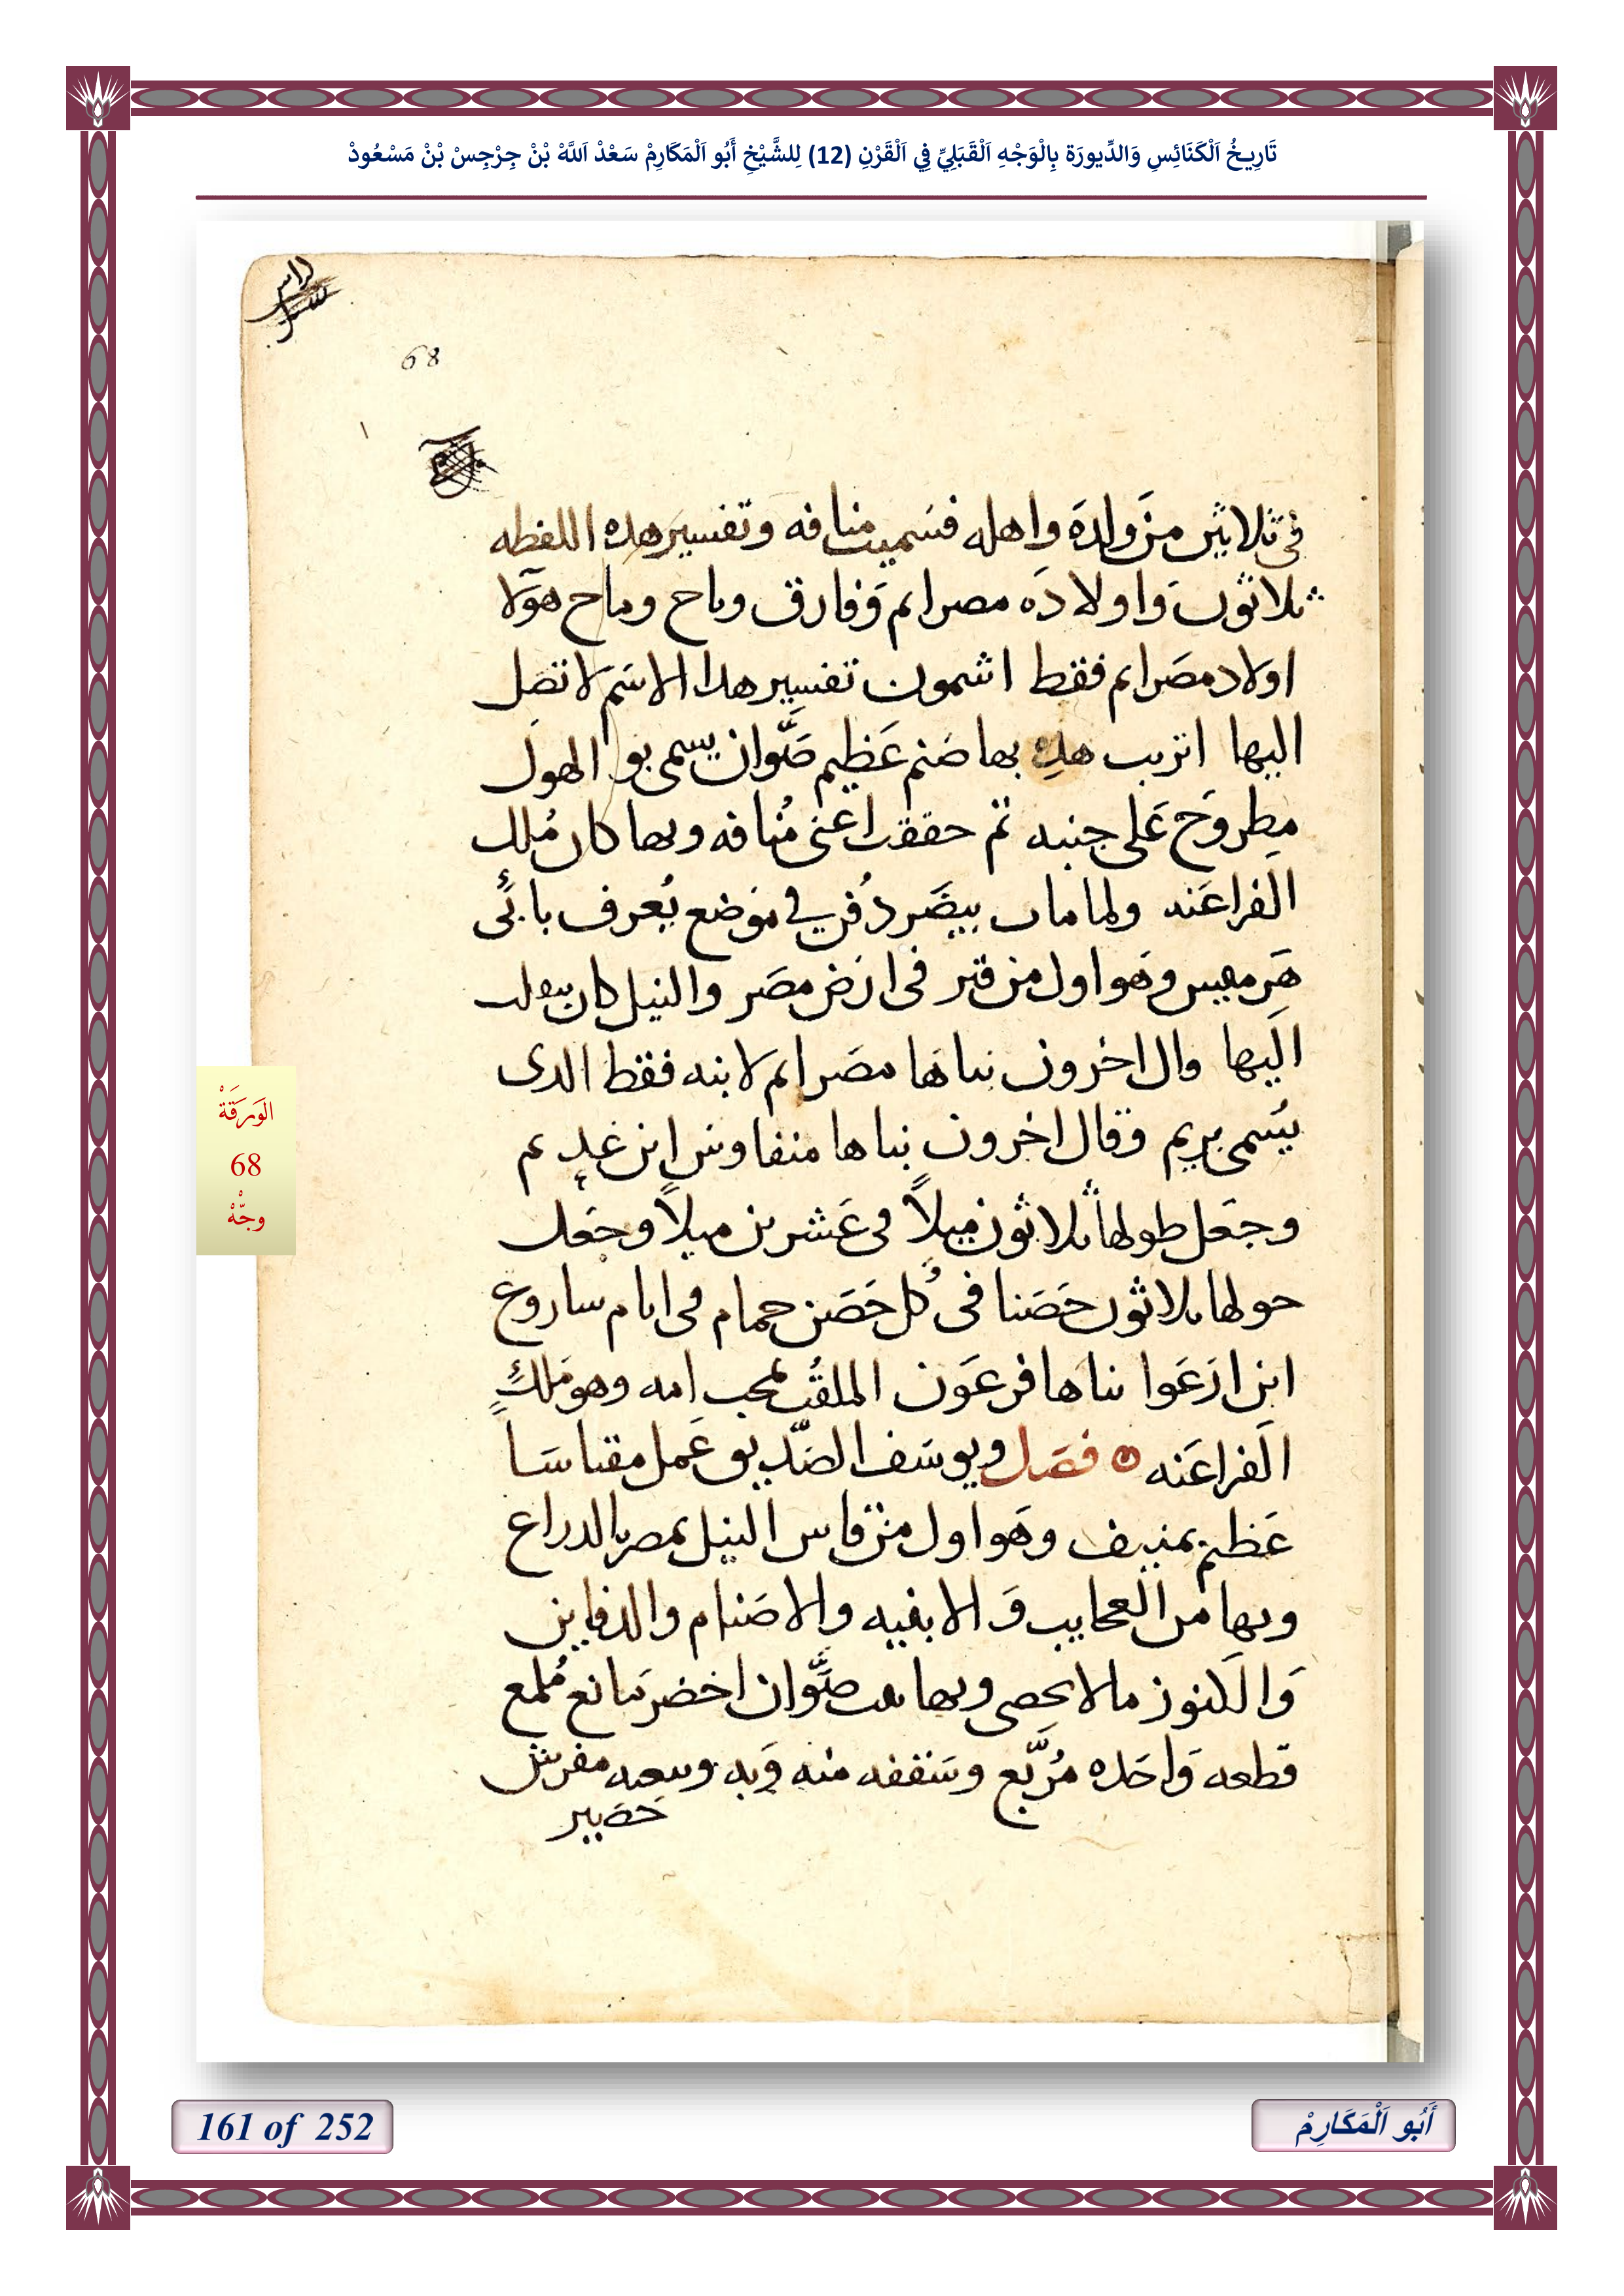 تَارِيخُ اَلْكَنَائِسِ وَالدِّيورَة بِالْوَجْهِ اَلْقَبَلِيِّ فِي اَلْقَرْنِ (12) لِلشَّيْخِ أَبُو اَلْمَكَارِمْ سَعْدْ اَللَّهْ بْنْ جِرْجِسْ بْنْ مَسْعُودْ
68
فى ثلاثين من ولده واهله فسميت منافه وتفسير هده اللفظه
ثلاثون واولاده مصرايم وفارق وماح وماح هولا
اولاد مصرايم فقط اشمون تفسير هدا الاسم لا تصل
اليها اتريب هده بها صنم عظيم صوان يسمى بو الهول
مطروح على جنبه ثم حققت اعنى منافه وبها كان ملك
الفراعنه ولما مات بيصر دفن في موضع يعرف بابى
هرميس وهو اول من قبر فى ارض مصر والنيل كان
اليها وال اخرون بناها مصرايم لابنه فقط الدى
يسمى بريم وقال اخرون بناها منفاوش ابن عديم
وجعل طولها ثلاثون ميلاً فى عشرين ميلاً وجعل
حولها ثلاثون حصنا فى كل حصن حمام فى ايام ساروع
ابن ارعوا بناها فرعون الملقب بمحب امه وهو ملك
الفراعنه فصل ويوسف الصديق عمل مقياسا
عظيم بمنيف وهو اول من قاس النيل بمصر بالدراع
وبها من العجايب والابنيه والاصنام والدفاين
والكنوز ما لا يحصى وبها بيت صوان اخضر مانع ملمع
قطعه واحده مربع وسقفه منه وبه وبيعه مفرش
حصير
الوَرَقَةْ
68
وجّهْ
161 of 252
أَبُو اَلْمَكَارِمْ